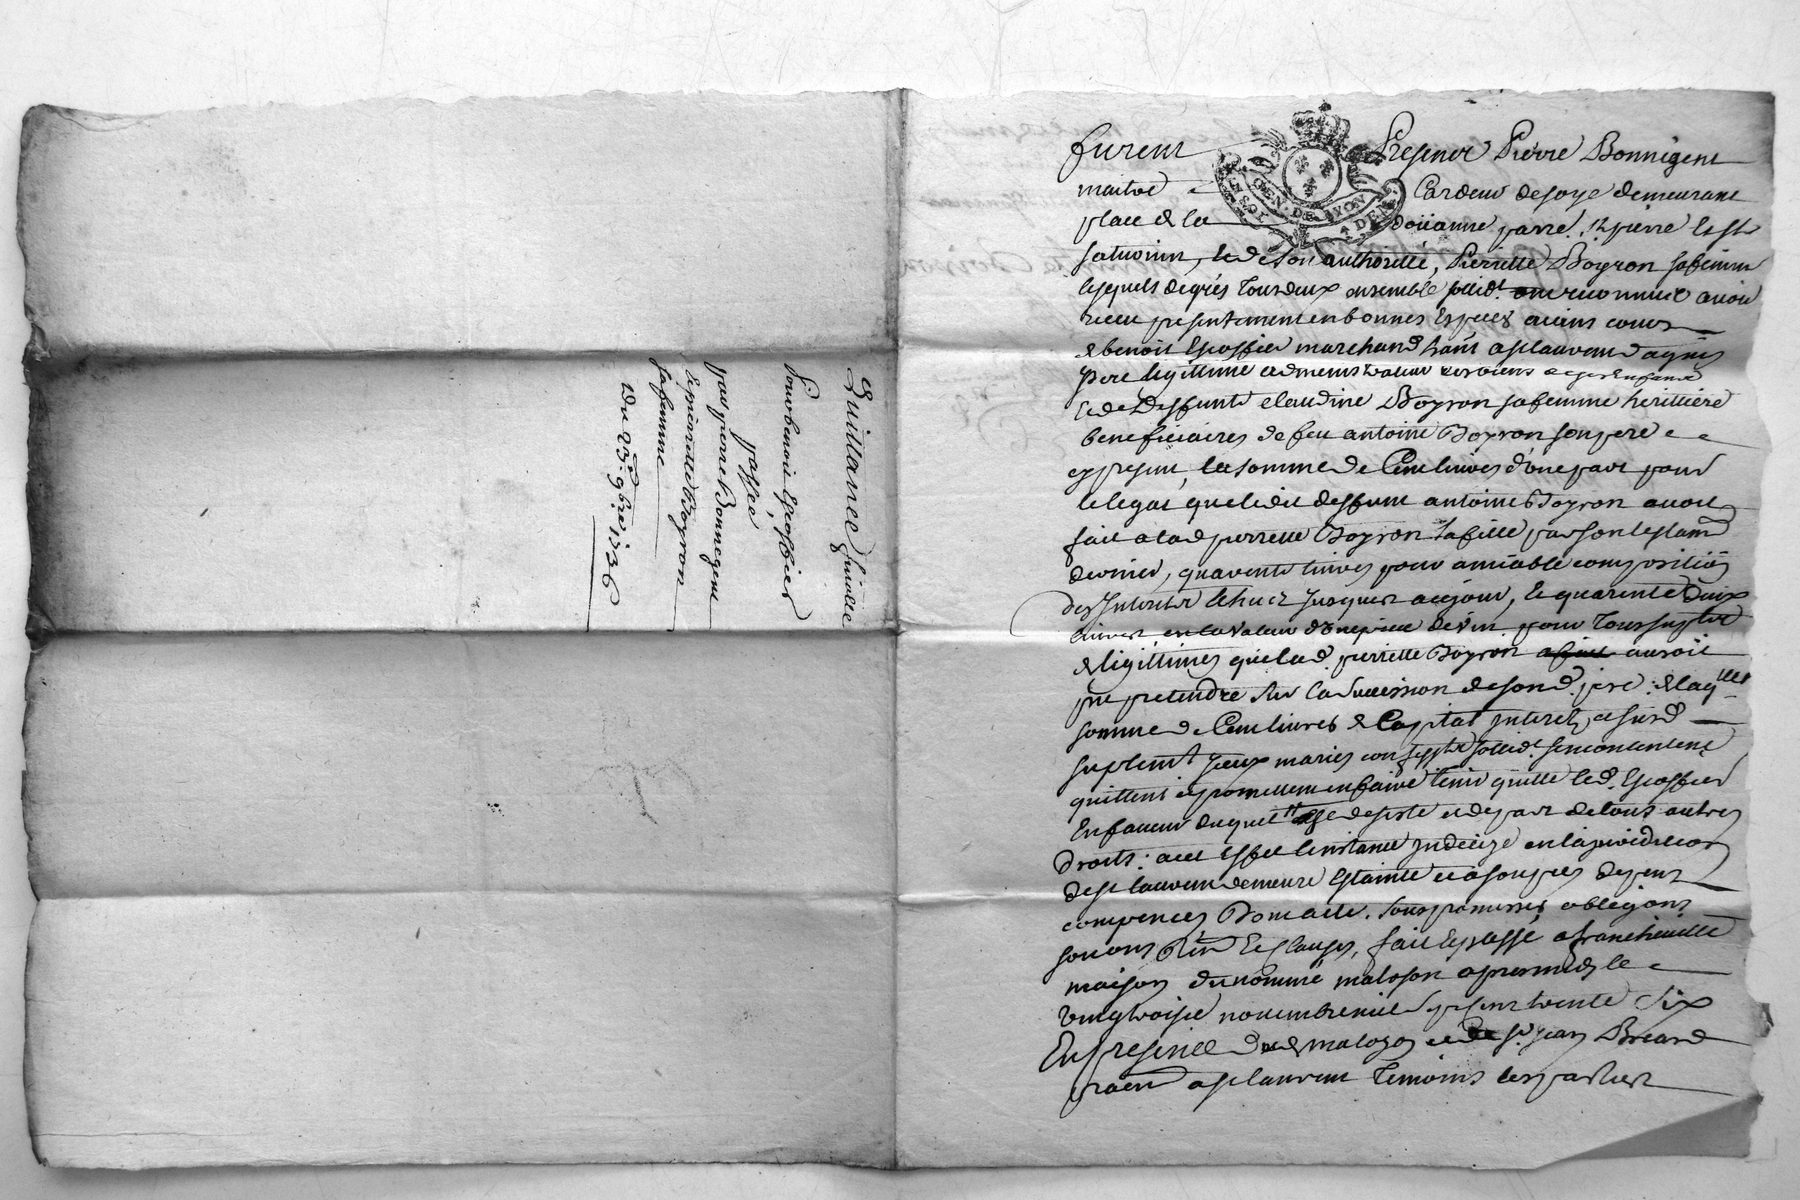 Quittance finalle
pour benoit Escoffier
passée
par pierre Bonnegent
& pierrette Boyron
sa femme
du 23e 9bre 1736
furent Present Pierre Bonnegent
GEN. DE LYON
maitre Cardeur de soye demeurant
place de la doüanne parre. St pierre le St
saturnin, & de son authoritté, Pierrette Boyron sa femme
lesquels de grés tous deux ensemble sollidt. ont reconnut avoir
receu presentement en bonnes Especes aiant cours
de benoit Escoffier marchand hant a St laurent d'agnis
pere legittime administrateur des biens de ses Enfants
& de Deffunte claudine Boyron sa femme herittiere
beneficiaires de feu antoine Boyron son pere
present, la somme de Cent livres d'une part pour
le legat que le dit deffunt antoine Boyron avoit
fait a lad. pierrette Boyron sa fille par son testamt
dernier, quarente livres pour amiable composition
des Interets échus jusques a ce jour, & quarente deux
livres en la valeur d'une piece de vin pour tous suplt
de legittimes que lad. pierrette Boyron auroit
pu pretendre sur la succession de son d. pere : de laqlle
somme de Cent livres de Capital interetz et surd
suplemt yceux mariés sollidt. se contentent
quittent et promettent en faire tenir quitte led. Escoffier
En faveur duquel se desiste et depart de tous autres
droits : a cet effet l'instance indecise en la jurisdiction
de St laurent demeure Estainte et assoupies depens
compences Dont acte. sous promesses obligaons
soumons Rèn & Clauses, fait & passé a francheville
maison du nommé malozon apres midy le
vingt troisie novembre mil sept cent trente six
En presence dud malozon et de Sr. jean Briand
praen a St laurent Temoins les parties